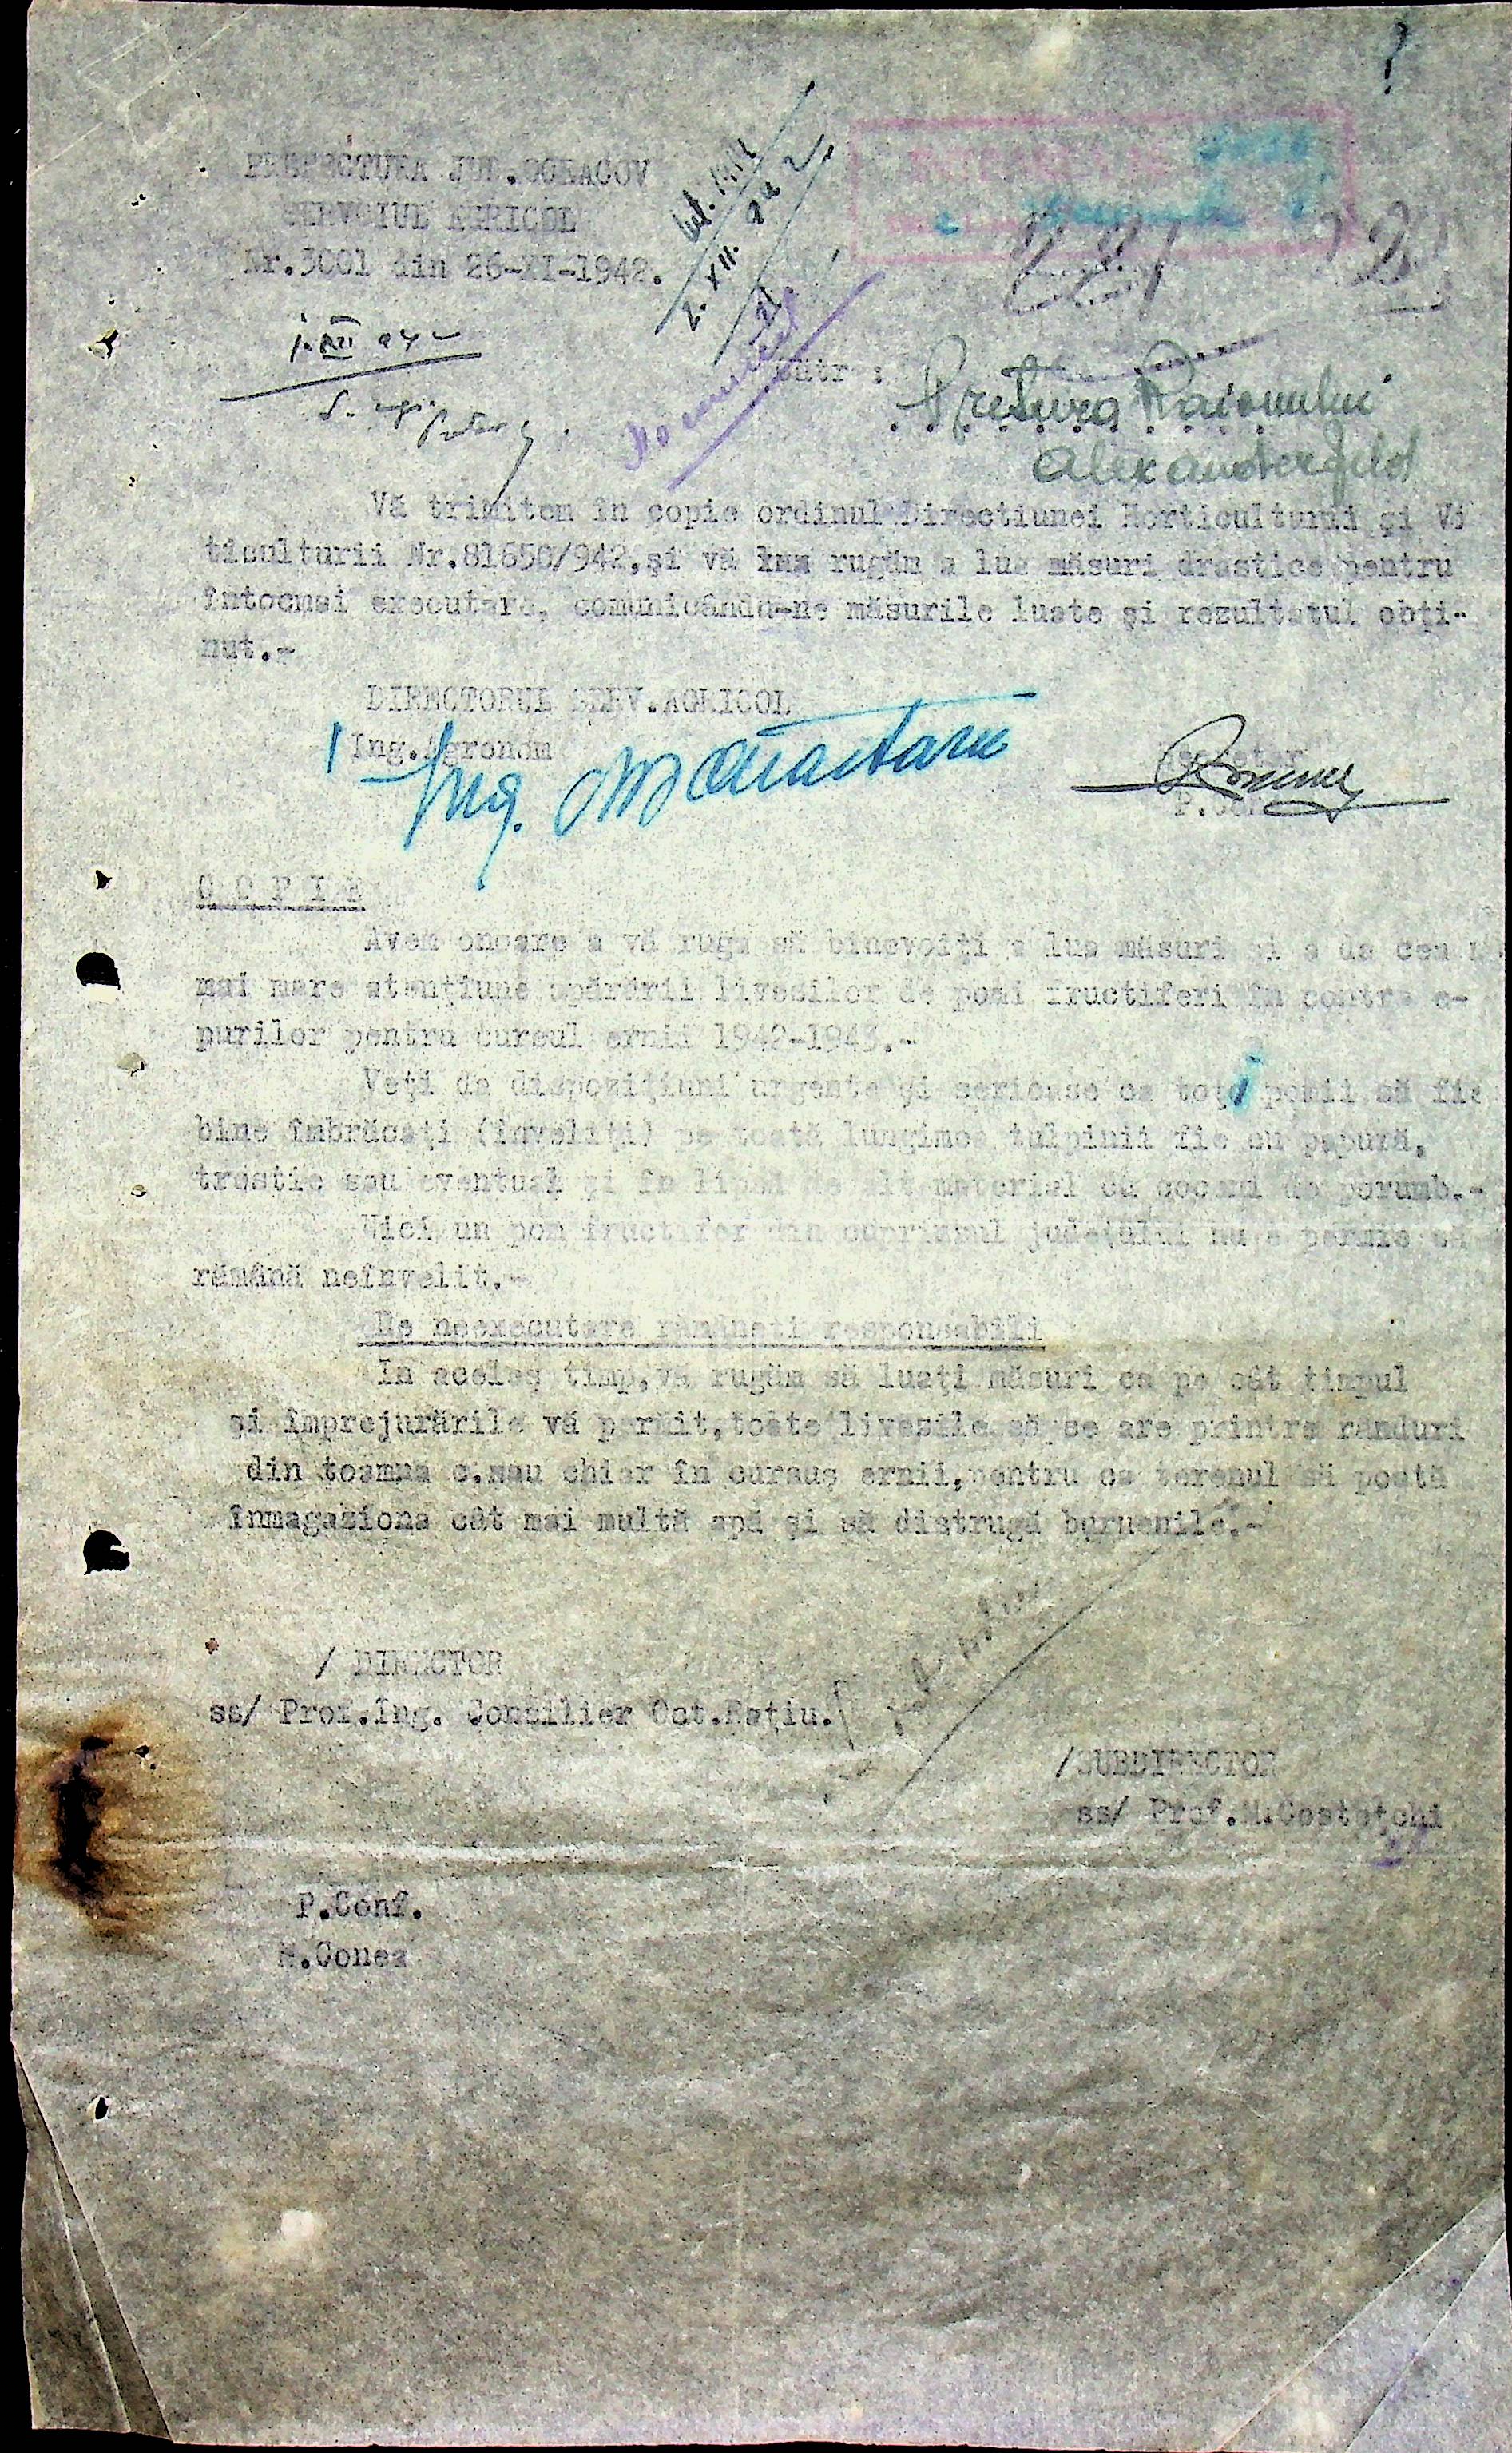 PREFECTURA JUD.OCEACOV
SERVCIUL AGRICOL
Nr.3001 din 26-XI-1942.
1.XII 942
2.XII.942
Cătr :
Pretura Raionului
Alexanderfeld
Vă trimitem în copie ordinul Directiunei Horticulturii şi Vi
ticulturii Nr.81650/942,şi vă rugăm a lua măsuri drastice pentru
întocmai executare, comunicându-ne măsurile luate şi rezultatul obţi-
nut.-
DIRECTORUL SERV.AGRICOL
Ing.Agronom
Ing.
Secretar
C O P I E
Avem onoare a vă ruga să binevoiţi a lua măsuri şi a da cea
mai mare atenţiune apărării livezilor de pomi fructiferi în contra e-
purilor pentru cursul ernii 1942-1943.-
Veţi da dispoziţiuni urgente şi serioase ca toţi pomii să fie
bine îmbrăcaţi (înveliţi) pe toată lungimea tulpinii fie cu papură,
trestie sau eventual şi în lipsă de alt material cu coceni de porumb.-
Nici un pom fructifer din cuprinsul judeţului nu e permis să
rămână neînvelit.-
De neexecutare rămâneţi responsabili
In acelaş timp,vă rugăm să luaţi măsuri ca pe cât timpul
şi împrejurările vă permit,toate livezile să se are printre rânduri
din toamna c.sau chiar în cursuş ernii,pentru ca terenul să poată
înmagaziona cât mai multă apă şi să distrugă buruenile.-
/ DIRECTOR
ss/ Prox.Ing. Consilier Oct.Raţiu.
/SUBDIRECTOR
ss/ Prof.M.Costeţchi
P.Conf.
N.Conea